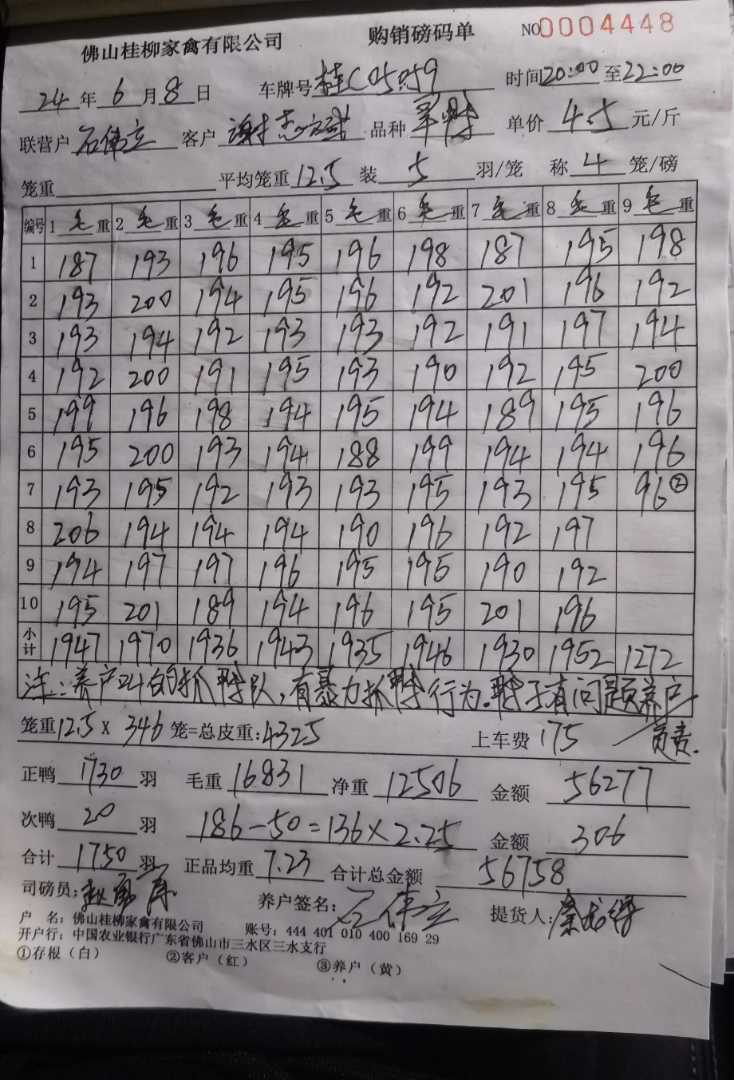 佛山桂柳家禽有限公司 购销磅码单 NO0004448
24年6月8日 车牌号桂C05059 时间20:00至22:00
联营户石伟立 客户谢志斌 品种 单价4.5元/斤
笼重 平均笼重12.5 装5羽/笼 称4笼/磅
编号 1毛重 2毛重 3毛重 4毛重 5毛重 6毛重 7毛重 8毛重 9毛重
1 187 193 196 195 196 198 187 195 198
2 193 200 194 195 196 192 201 196 192
3 193 194 192 193 193 192 191 197 194
4 192 200 191 195 193 190 192 195 200
5 199 196 198 194 195 194 189 195 196
6 195 200 193 194 188 199 194 194 196
7 193 195 192 193 193 195 193 195 96②
8 206 194 194 194 190 196 192 197
9 194 197 197 196 195 195 190 192
10 195 201 189 194 196 195 201 196
小计 1947 1970 1936 1943 1935 1946 1930 1952 1272
注:养户24自的抓鸭队,有暴力抓鸭行为。鸭子有问题养户
负责.
笼重12.5X346笼=总皮重:4325 上车费175
正鸭1730羽 毛重16831 净重12506 金额56277
次鸭20羽 186-50=136×2.25 金额306
合计1750羽 正品均重7.23 合计总金额56758
司磅员: 养户签名:石伟立 提货人:
户 名:佛山桂柳家禽有限公司 账号:444 401 010 400 169 29
开户行:中国农业银行广东省佛山市三水区三水支行
①存根(白) ②客户(红) ③养户(黄)